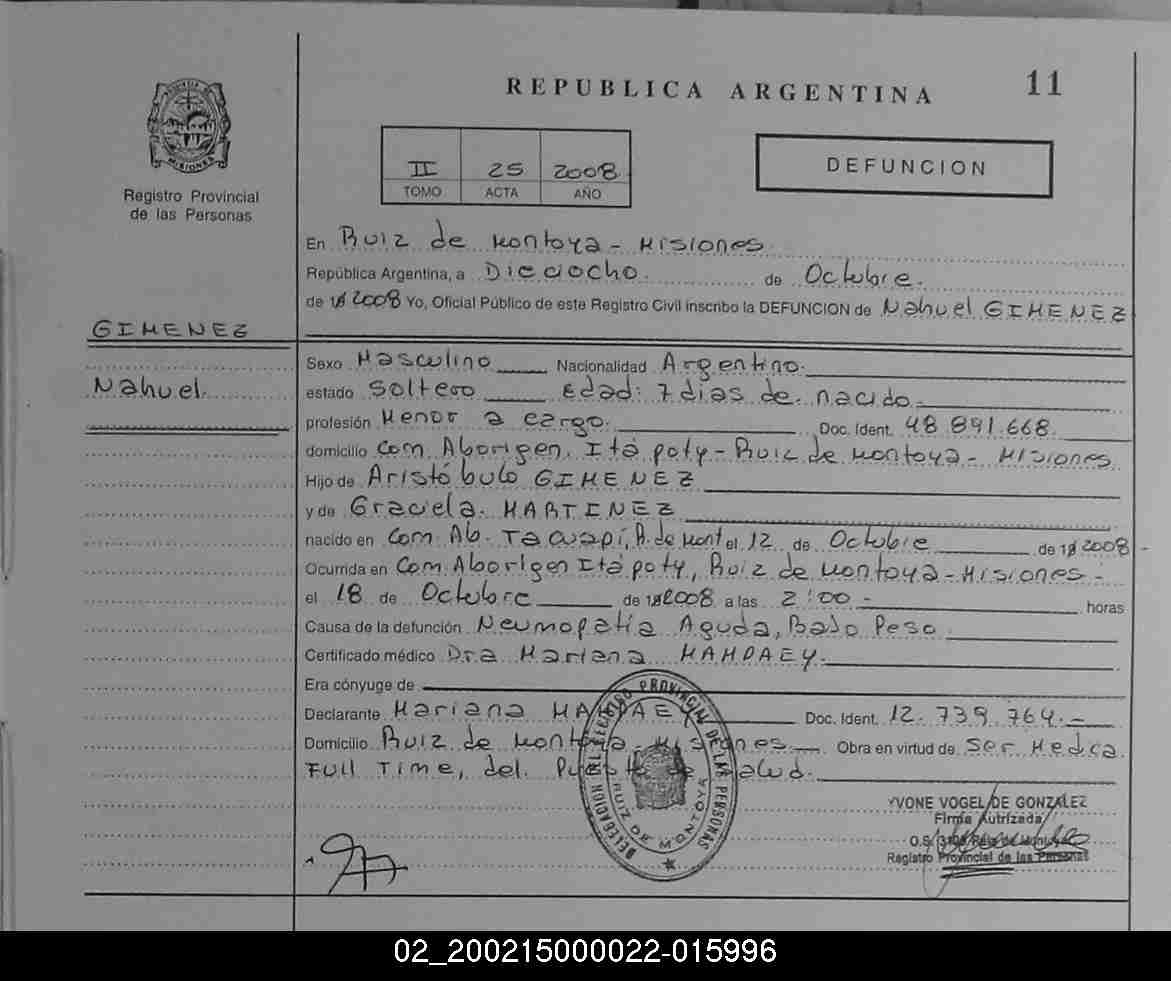 REPUBLICA ARGENTINA 11
PROVINCIA DE MISIONES
Registro Provincial
de las Personas
II 25 2008
TOMO ACTA AÑO
DEFUNCION
En Ruiz de Montoya - Misiones
República Argentina, a Dieciocho. de Octubre.
de 2008 Yo, Oficial Público de este Registro Civil inscribo la DEFUNCION de Nahuel GIMENEZ
GIMENEZ
Nahuel.
Sexo Masculino Nacionalidad Argentino.
estado Soltero Edad: 7 dias de nacido
profesión Menor a cargo. Doc. Ident. 48.891.668.
domicilio Com. Aborigen. Itá poty - Ruiz de Montoya - Misiones
Hijo de Aristóbulo GIMENEZ
y de Graciela. MARTINEZ
nacido en Com. Ab. Tacuapí, R. de Mont el 12 de Octubre de 2008 -
Ocurrida en Com. Aborigen Itá poty, Ruiz de Montoya - Misiones -
el 18 de Octubre de 2008 a las 2:00 - horas
Causa de la defunción Neumopatía Aguda, Bajo Peso
Certificado médico Dra Mariana MAHDAEY.
Era cónyuge de
Declarante Mariana MAHDAEY Doc. Ident. 12.739.764.-
Domicilio Ruiz de Montoya - Misiones Obra en virtud de Ser Medica
Full Time, del Puesto de Salud.
DELEGACION DEL REGISTRO PROVINCIAL DE LAS PERSONAS
RUIZ DE MONTOYA
YVONE VOGEL DE GONZALEZ
Firma Autrizada
Registro Provincial de las Personas
02_200215000022-015996